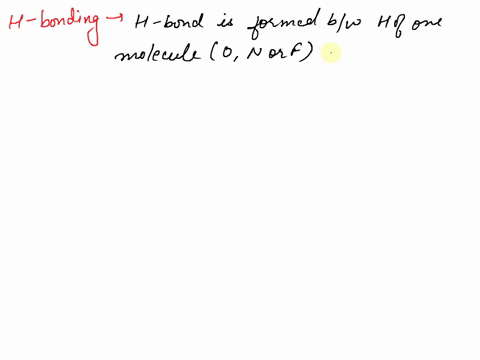 H-bonding → H-bond is formed b/w H of one
molecule (O, N or F)